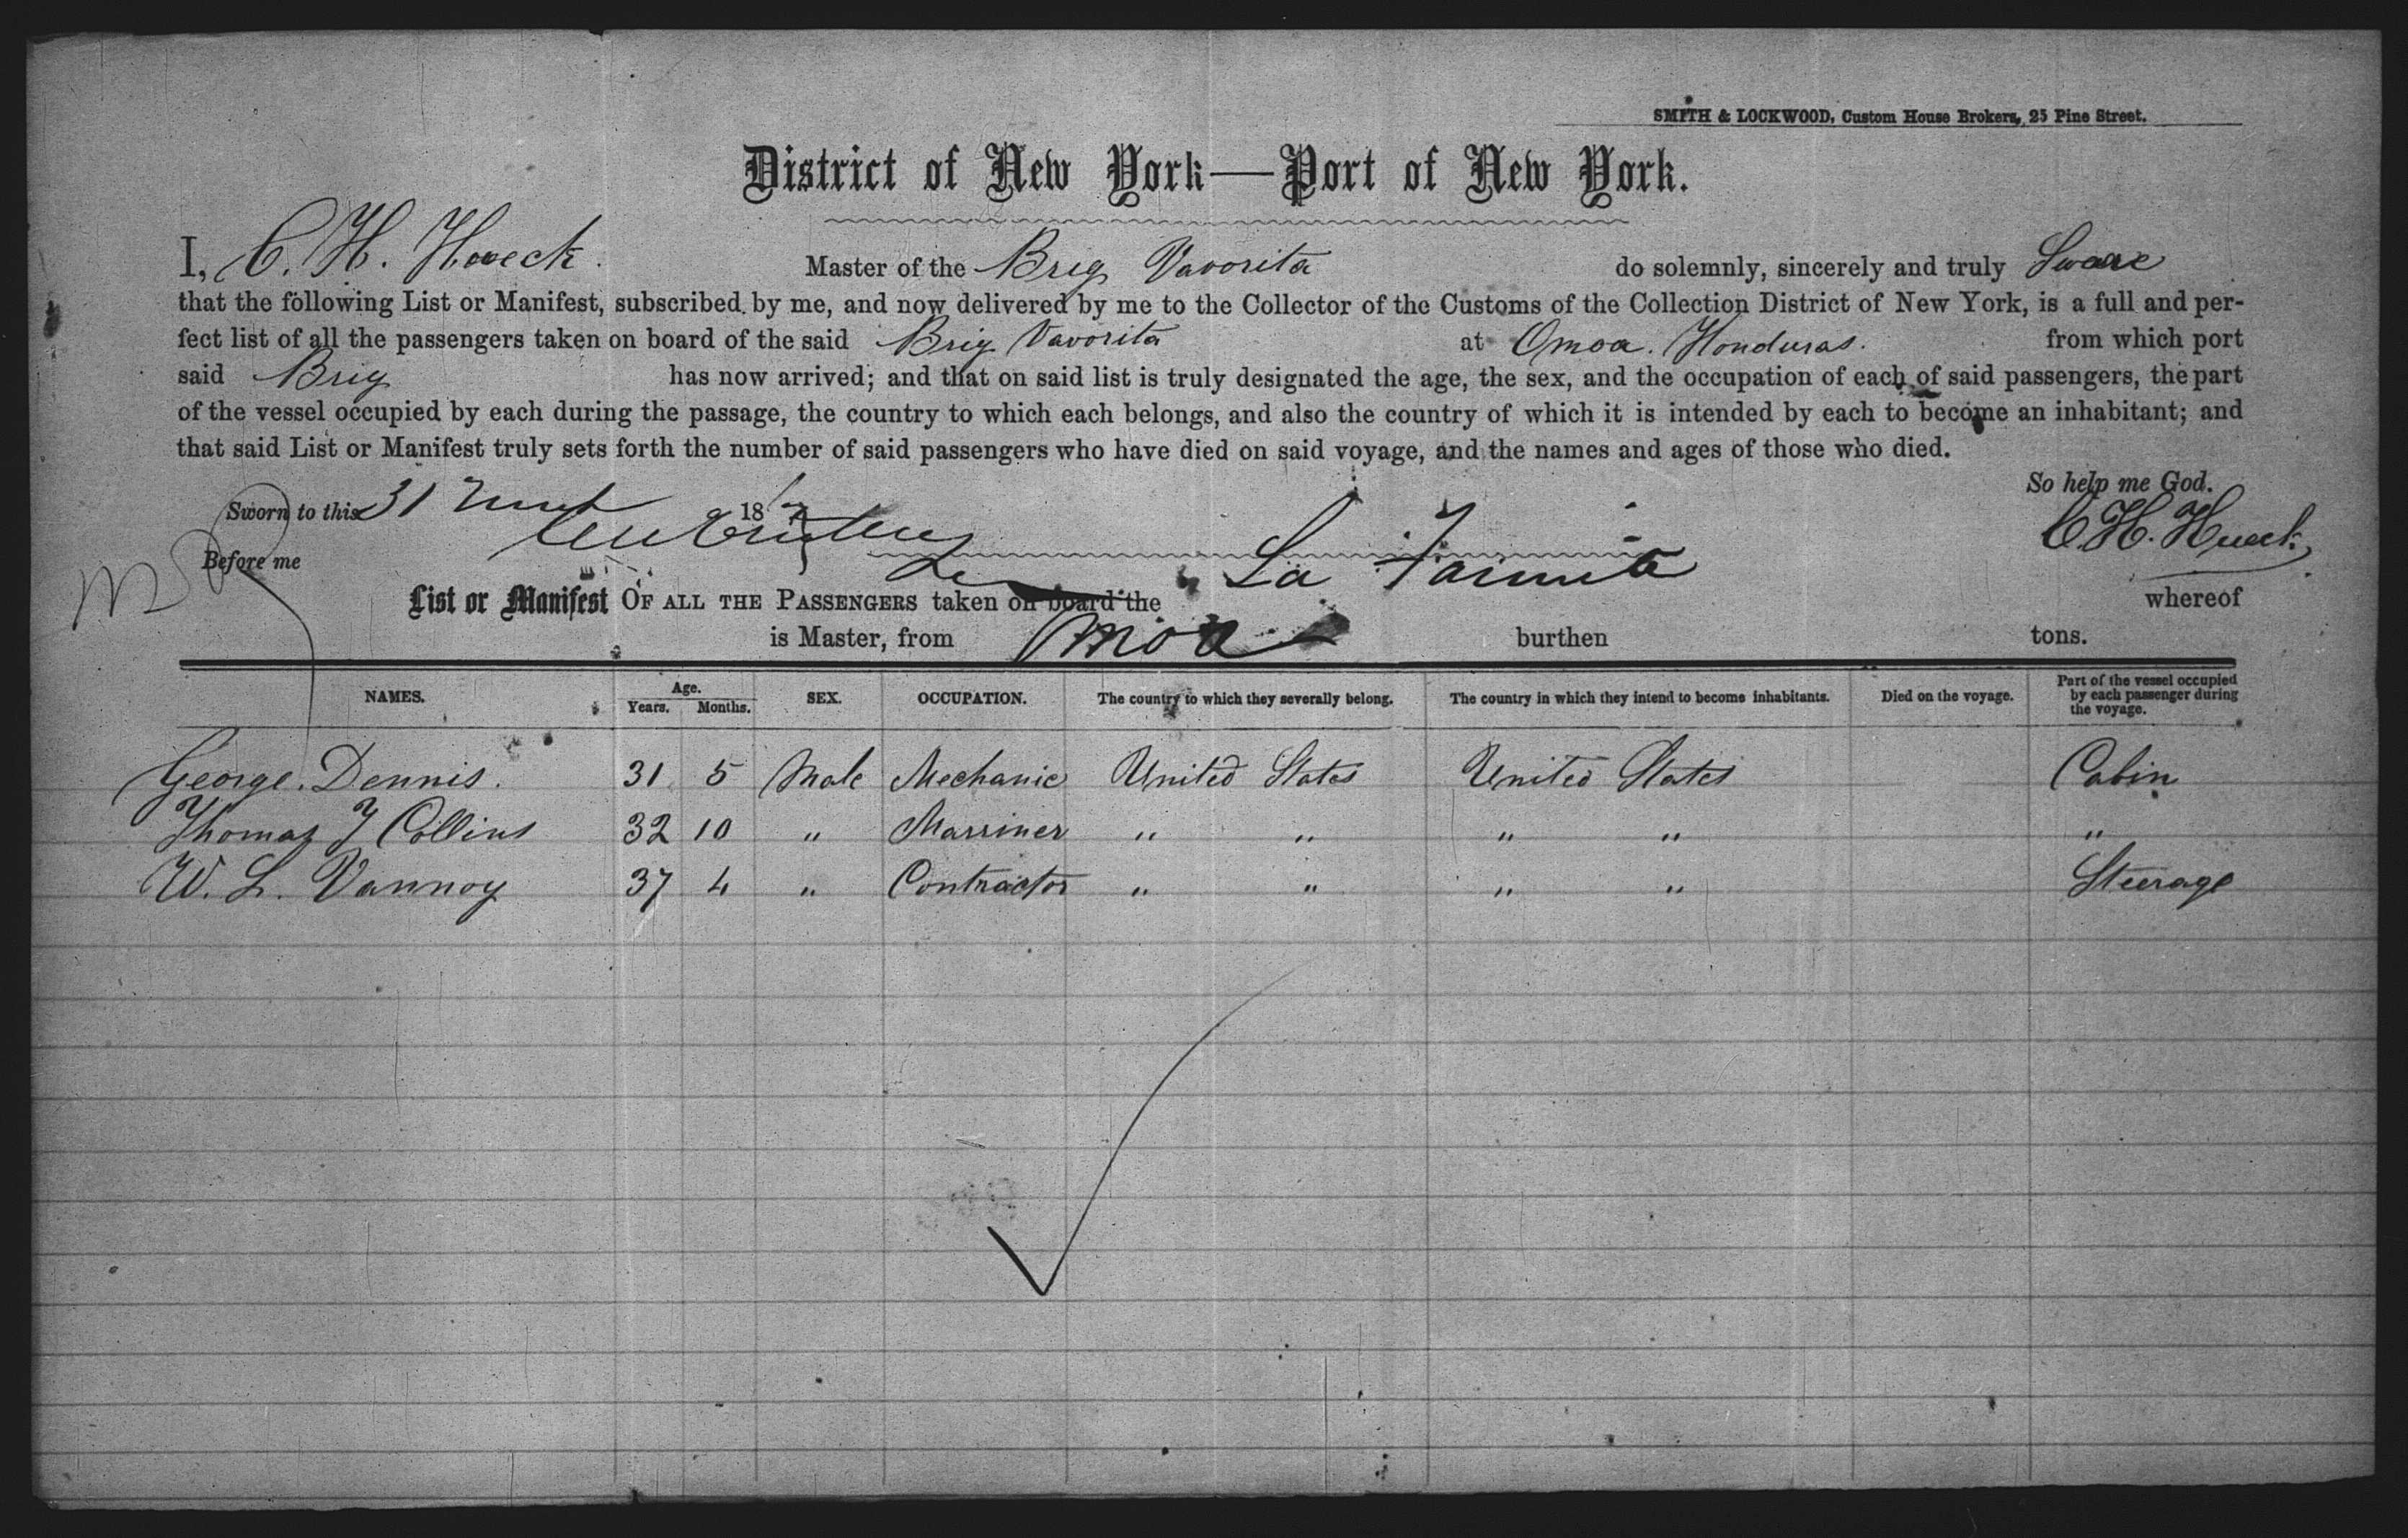 SMITH & LOCKWOOD, Custom House Brokers, 25 Pine Street.
District of New York—Port of New York.
I, C. H. Hoveck. Master of the Brig Vavorita do solemnly, sincerely and truly Sware
that the following List or Manifest, subscribed by me, and now delivered by me to the Collector of the Customs of the Collection District of New York, is a full and per-
fect list of all the passengers taken on board of the said Brig Vavorita at Omoa. Honduras. from which port
said Brig has now arrived; and that on said list is truly designated the age, the sex, and the occupation of each of said passengers, the part
of the vessel occupied by each during the passage, the country to which each belongs, and also the country of which it is intended by each to become an inhabitant; and
that said List or Manifest truly sets forth the number of said passengers who have died on said voyage, and the names and ages of those who died.
So help me God.
Sworn to this 31 186
C. H. Hueck
Before me
List or Manifest OF ALL THE PASSENGERS taken on board the La whereof
is Master, from Omoa burthen tons.
NAMES. Age. Years. Months. SEX. OCCUPATION. The country to which they severally belong. The country in which they intend to become inhabitants. Died on the voyage. Part of the vessel occupied by each passenger during the voyage.
George. Dennis. 31 5 Male Mechanic United States United States Cabin
Thomas J Collins 32 10 " Marriner " " " " "
W. L. Vannoy 37 4 " Contractor " " " " Steerage